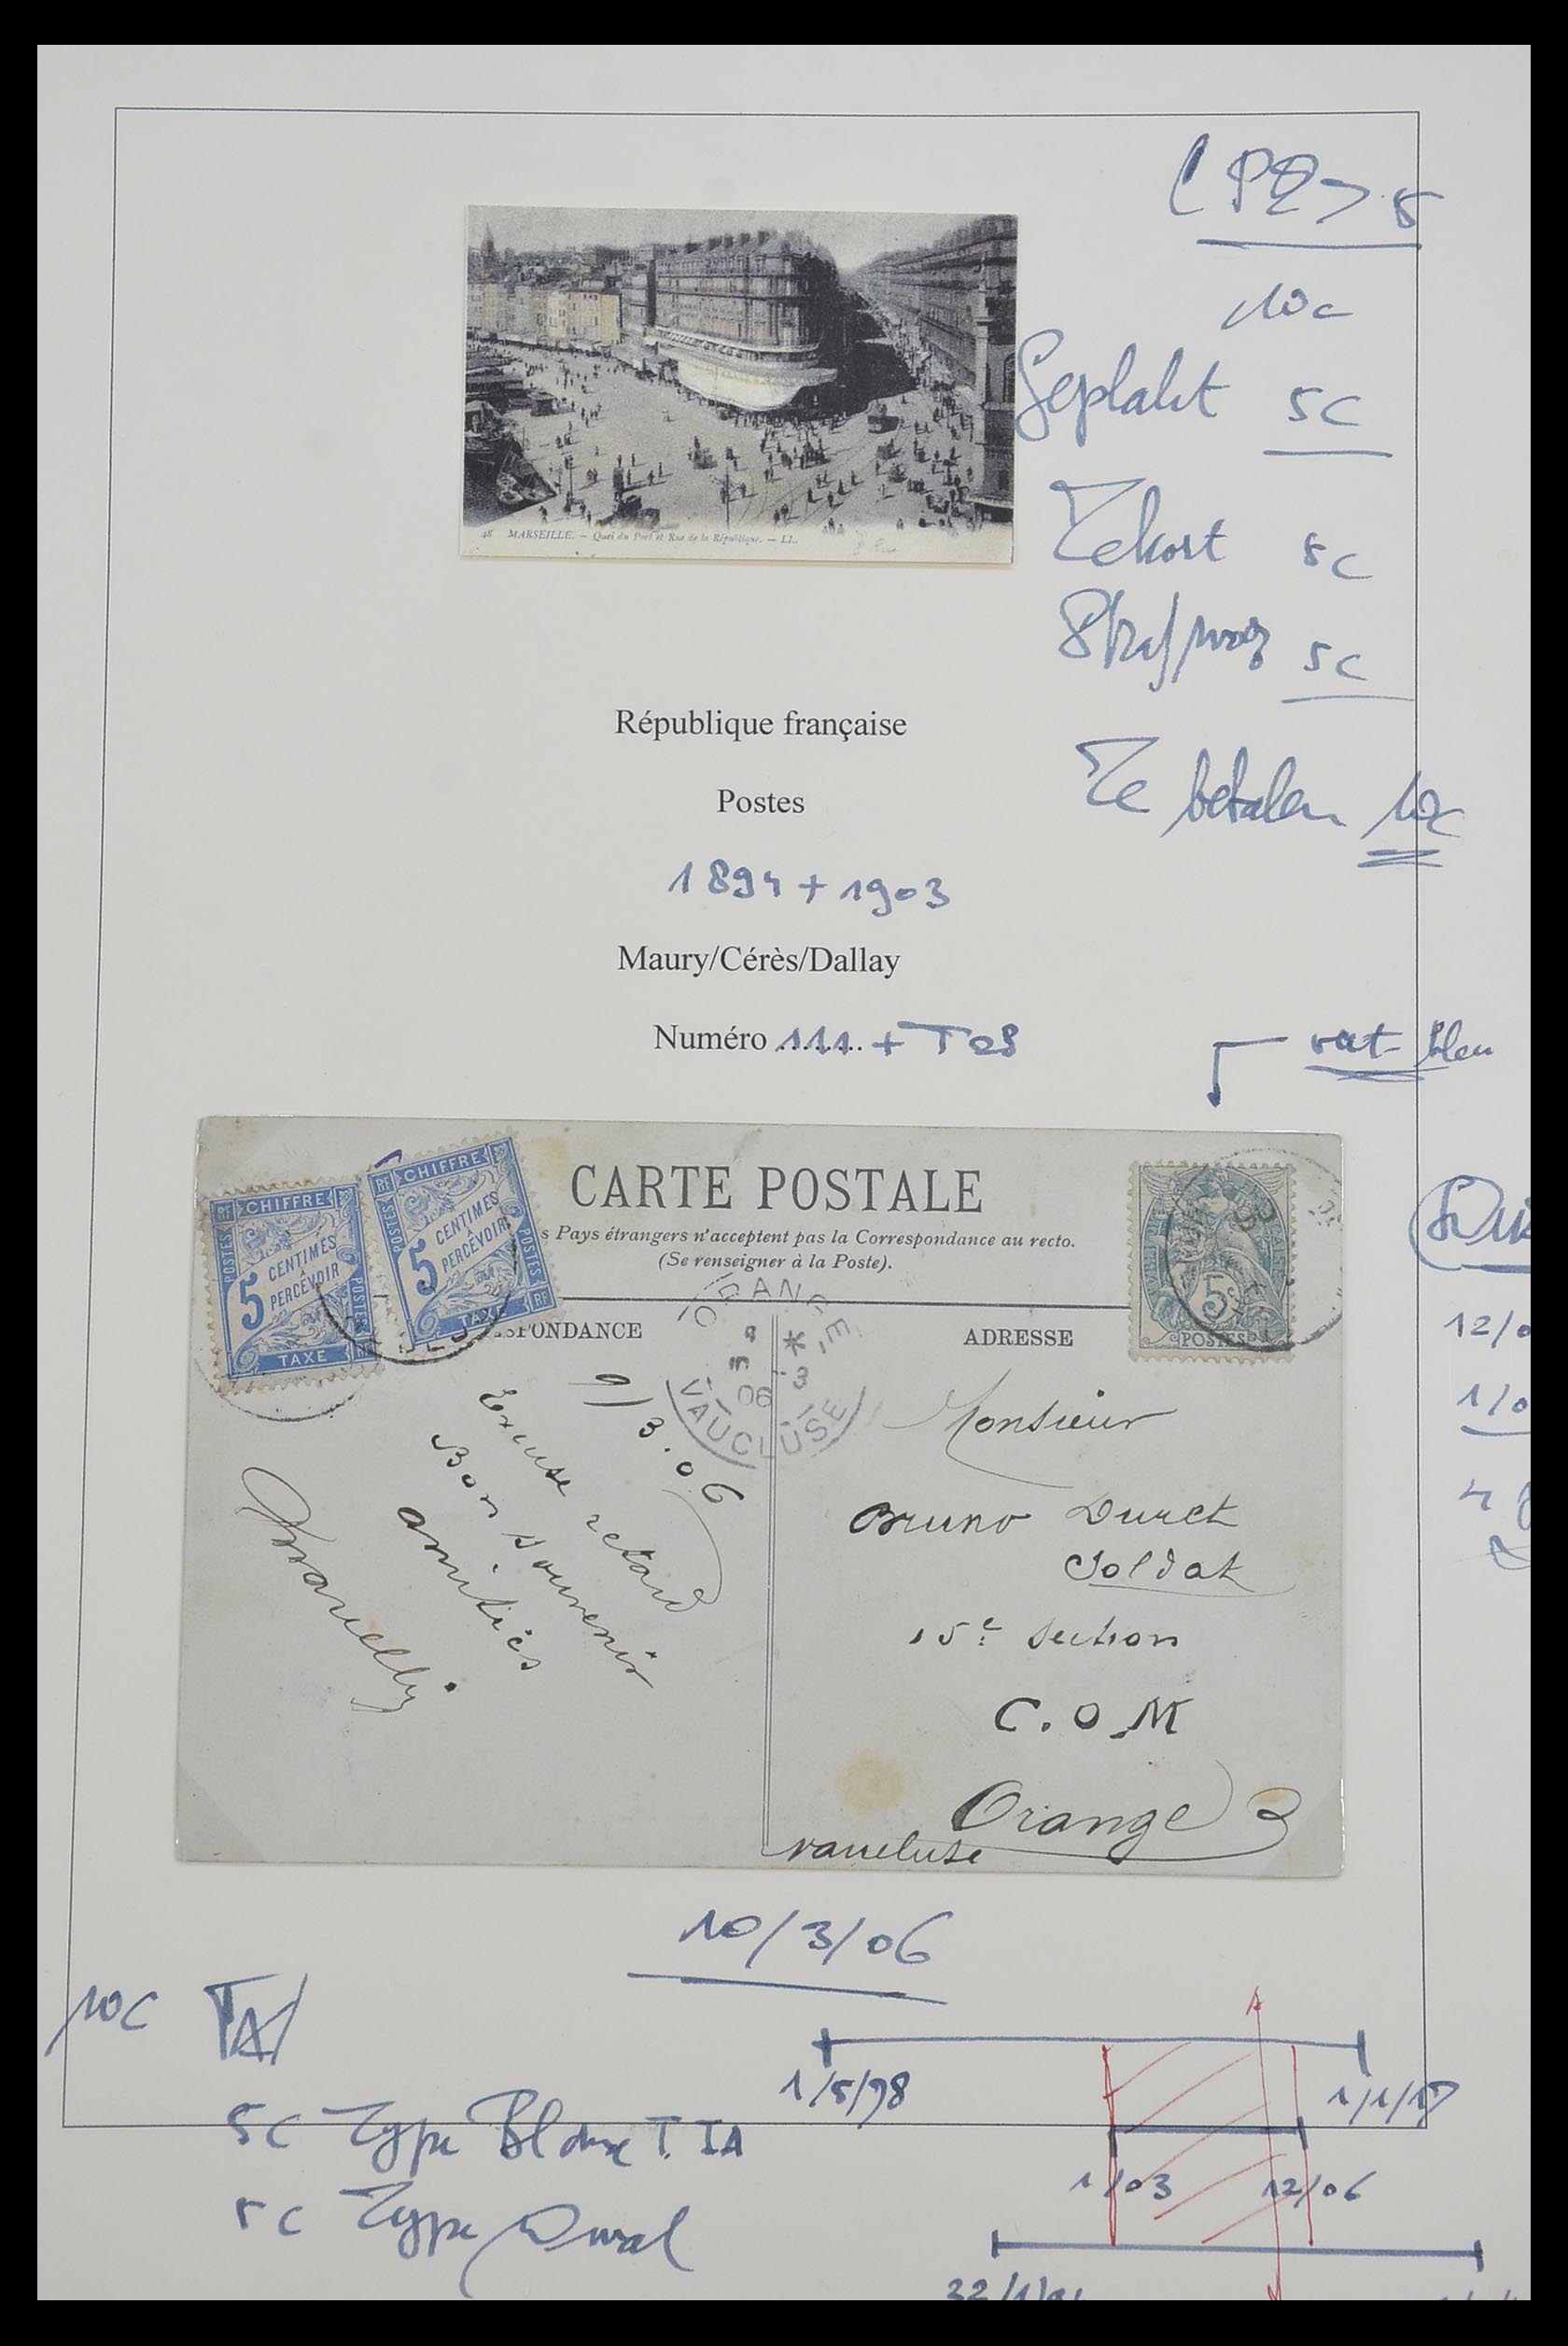 CP2>5
10c
Geplakt 5c
48 MARSEILLE. — Quai du Port et Rue de la République. — LL.
Tekort 5c
5c
République française
Te betalen 10c
Postes
1894 + 1903
Maury/Cérès/Dallay
Numéro 111 + T28
vert-bleu
CARTE POSTALE
s Pays étrangers n'acceptent pas la Correspondance au recto.
(Se renseigner à la Poste).
RF CHIFFRE
POSTES
5 CENTIMES
PERCEVOIR
POSTES
TAXE
RF CHIFFRE
POSTES
5 CENTIMES
PERCEVOIR
POSTES
TAXE RF
5c
POSTES
SPONDANCE
ADRESSE
ORANGE
*
3
06
VAUCLUSE
12/0
1/0
9/3.06
Excuse retard
Bon souvenir
amitiés
Monsieur
Bruno Duret
Soldat
15e Section
C.O.M
Orange
vaucluse
10/3/06
10c
5c Type Blanc T. IA
5c Type Duval
1/5/98
1/1/17
1/03
12/06